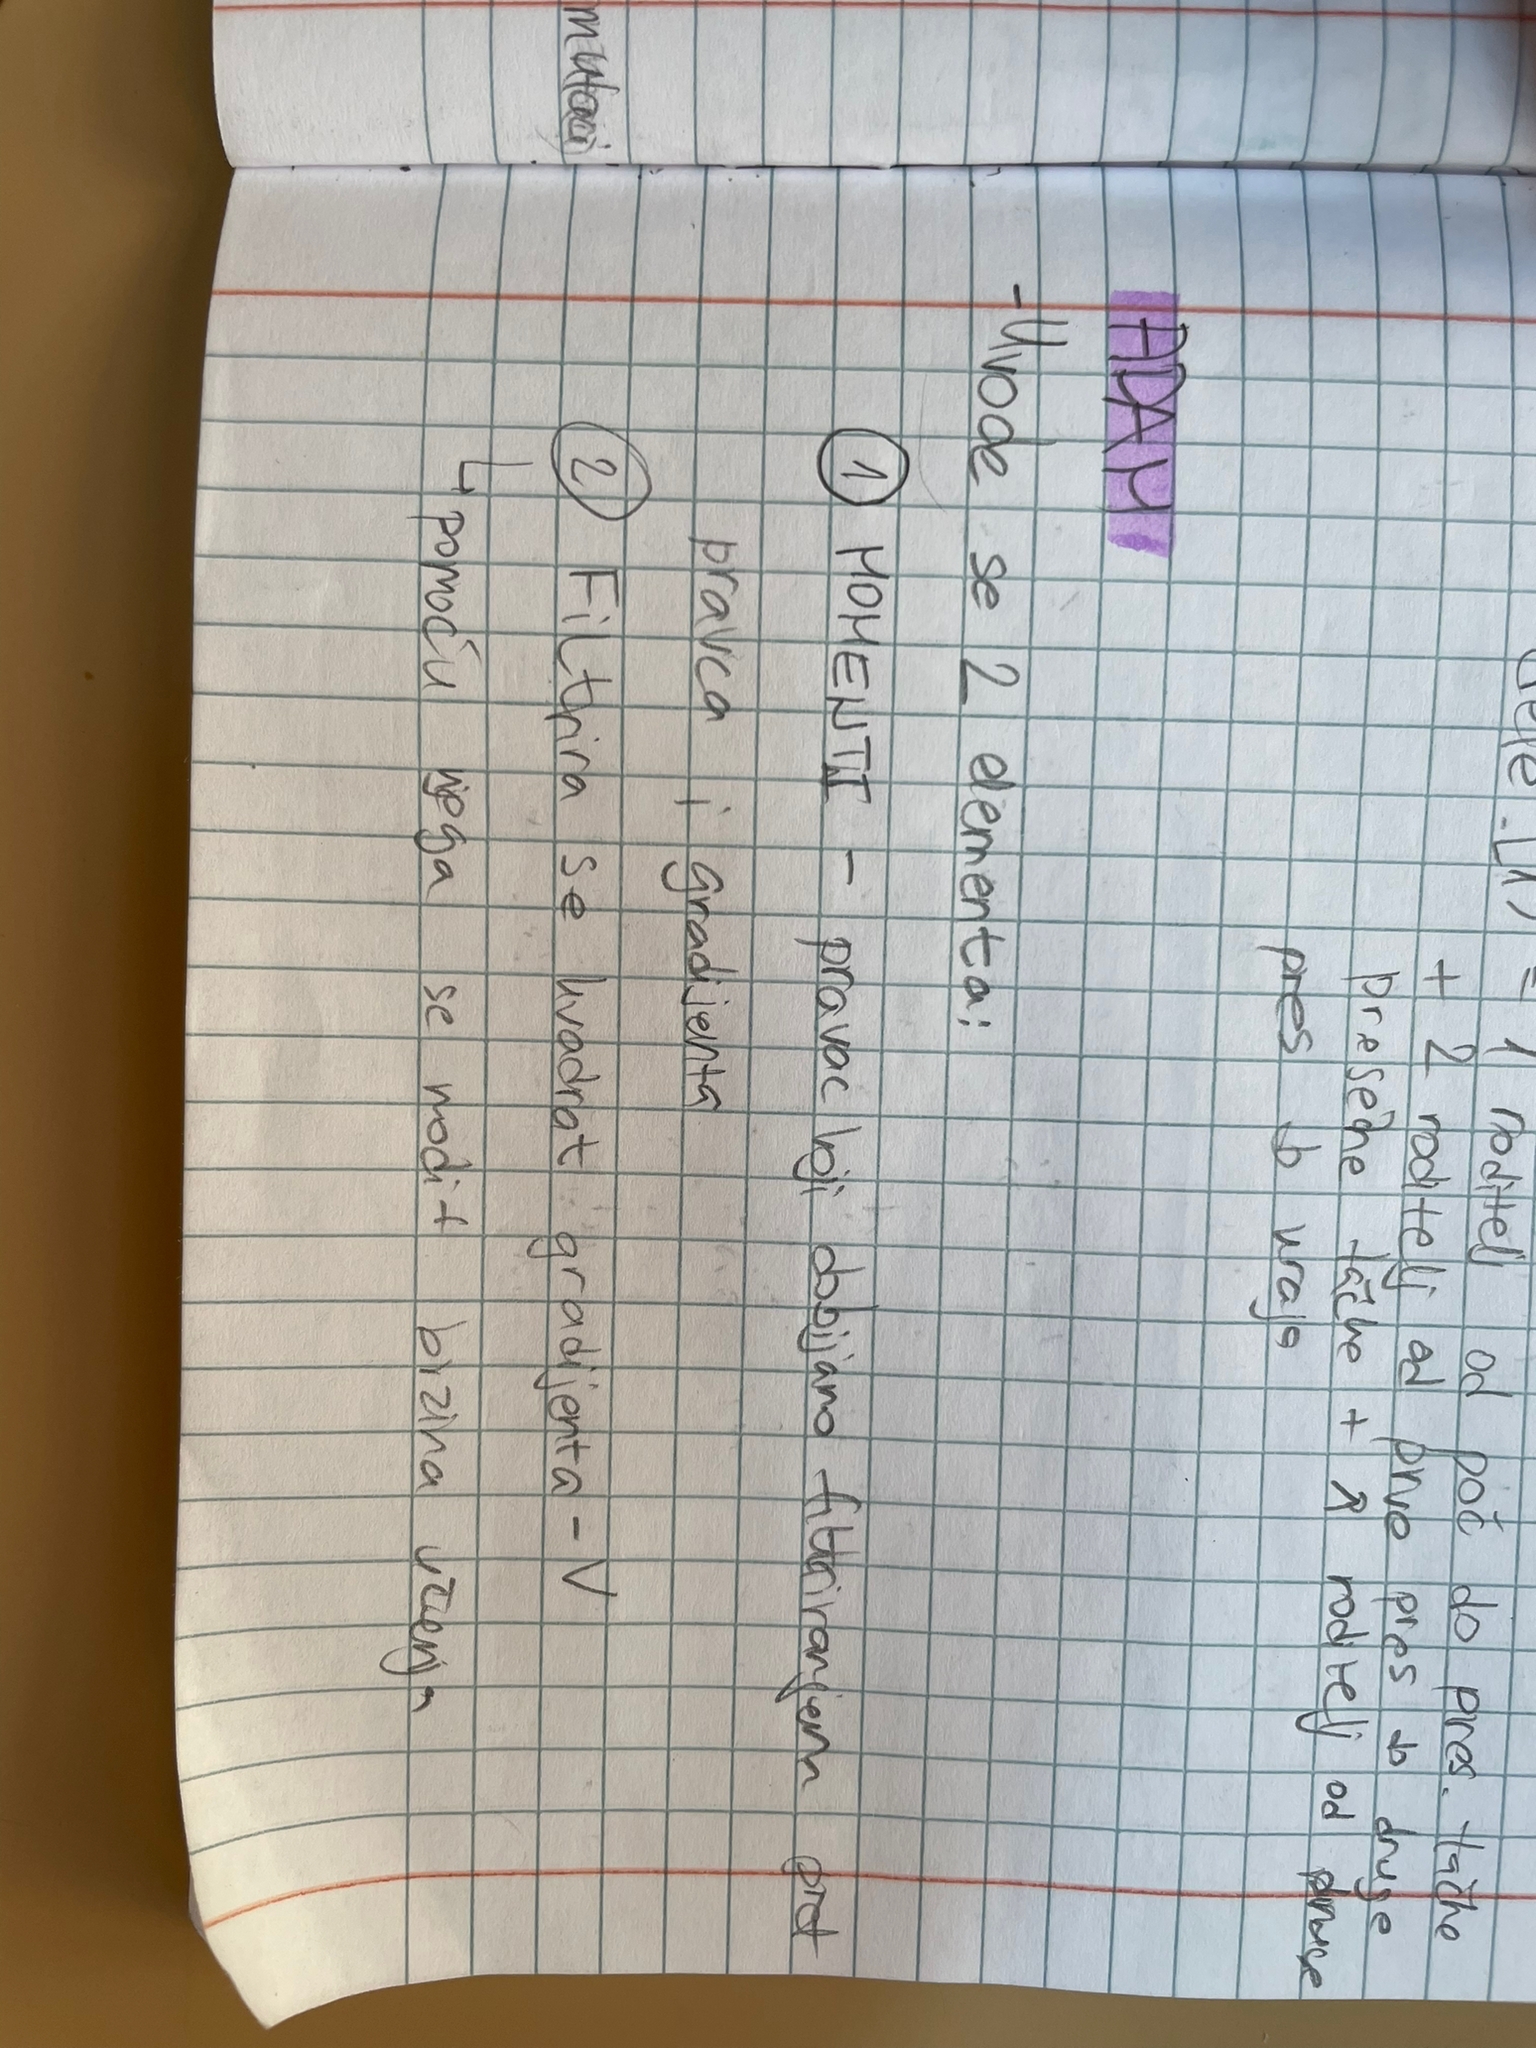 = 1 roditelj od poč do pres. tačke
+ 2 roditelj od prve pres do druge
presečne tačke + ↗ roditelj od druge
pres do kraja
ADAM
-Uvode se 2 elementa:
1 MOMENTI - pravac koji dobijamo filtriranjem pret
pravca i gradijenta
2 Filtrira se kvadrat gradijenta - V
↳ pomoću njega se modif brzina učenja
mutacij